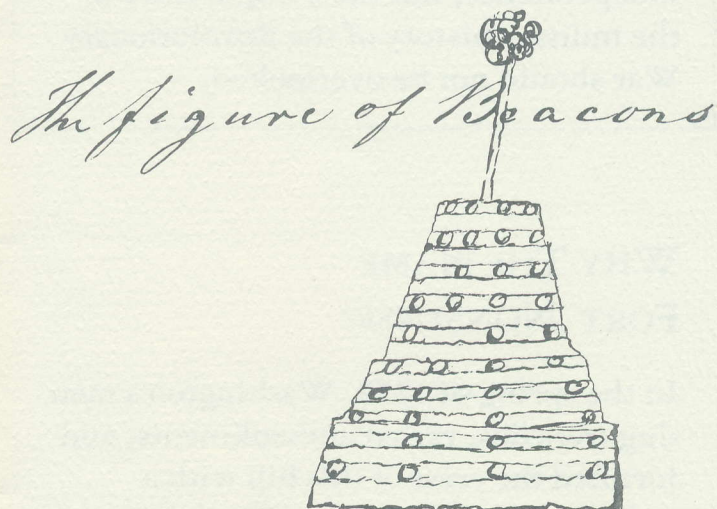 The figure of Beacons